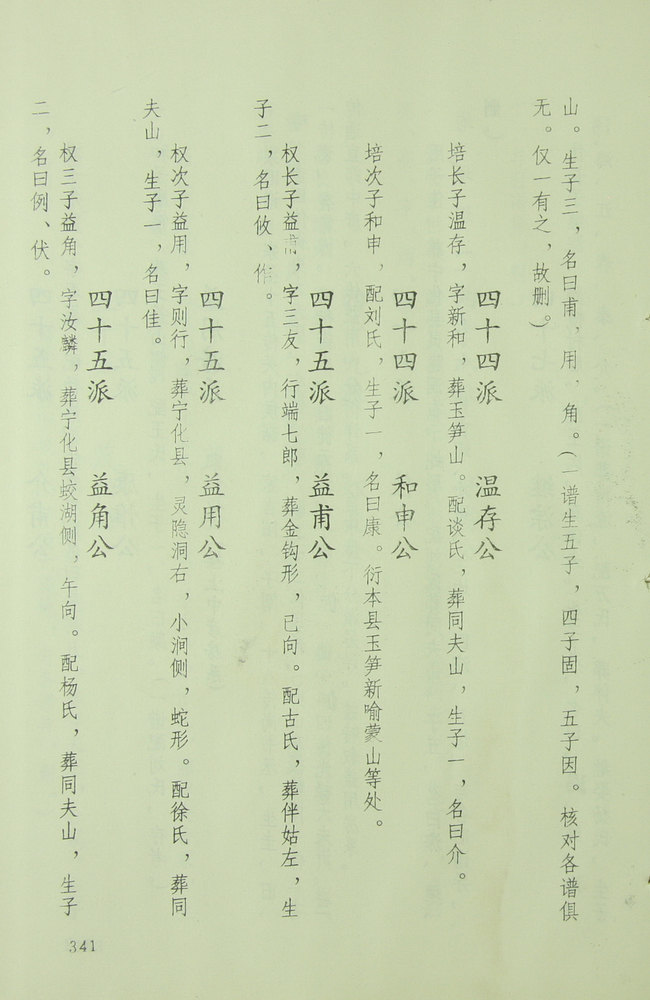 山。生子三，名曰甫，用，角。（一谱生五子，四子固，五子因。核对各谱俱
无。仅一有之，故删。）
四十四派　温存公
培长子温存，字新和，葬玉笋山。配谈氏，葬同夫山，生子一，名曰介。
四十四派　和申公
培次子和申，配刘氏，生子一，名曰康。衍本县玉笋新喻蒙山等处。
四十五派　益甫公
权长子益甫，字三友，行端七郎，葬金钩形，巳向。配古氏，葬伴姑左，生
子二，名曰攸、作。
四十五派　益用公
权次子益用，字则行，葬宁化县，灵隐洞右，小涧侧，蛇形。配徐氏，葬同
夫山，生子一，名曰佳。
四十五派　益角公
权三子益角，字汝麟，葬宁化县蛟湖侧，午向。配杨氏，葬同夫山，生子
二，名曰例、伏。
341